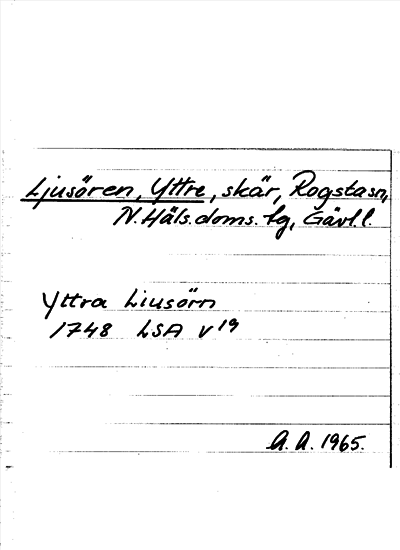 Ljusören, Yttre, skär, Rogstasn,
N.Häls.doms.tg, Gävl.l.
Yttra Liusörn
1748 LSA V 19
A. A. 1965.